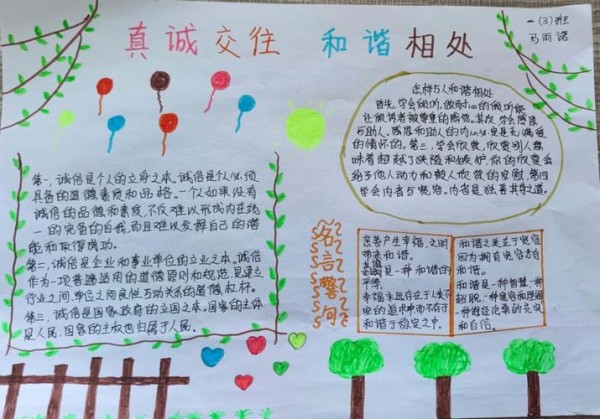 真诚交往 和谐相处
一(3)班
马雨诺
第一,诚信是个人的立身之本。诚信是个人必须
具备的道德素质和品格。一个人如果没有
诚信的品德和素质,不仅难以形成内在统
一的完备的自我,而且难以发挥自己的潜
能和取得成功。
第二,诚信是企业和事业单位的立业之本。诚信
作为一项普遍适用的道德原则和规范,是建立
行业之间,单位之间良性互动关系的道德杠杆。
第三,诚信是国家政府的立国之本。国家的主体
是人民,国家的主权也归属于人民。
怎样与人和谐相处
首先,学会倾听,
让倾诉者被尊重的感觉。其次,学会感恩
与助人,感恩和助人的内心,更是充满爱
的情怀的。第三,学会欣赏,欣赏别人意
味着超越了狭隘和嫉妒,你的欣赏会
给予他人动力和被人欣赏的安慰,第四
学会内省与宽容。内省是改善其身之道。
名言警句
友善产生幸福,文明
带来和谐。
是一种和谐的
平等。
幸福来临存在于人生不
更的追求中而不存于
和谐于稳定之中。
和谐之美在于宽容
因为拥有宽容才有
和谐。
和谐是一种智慧,一种
超脱,一种宽容和理解
一种饱经沧桑的充实
和自信。